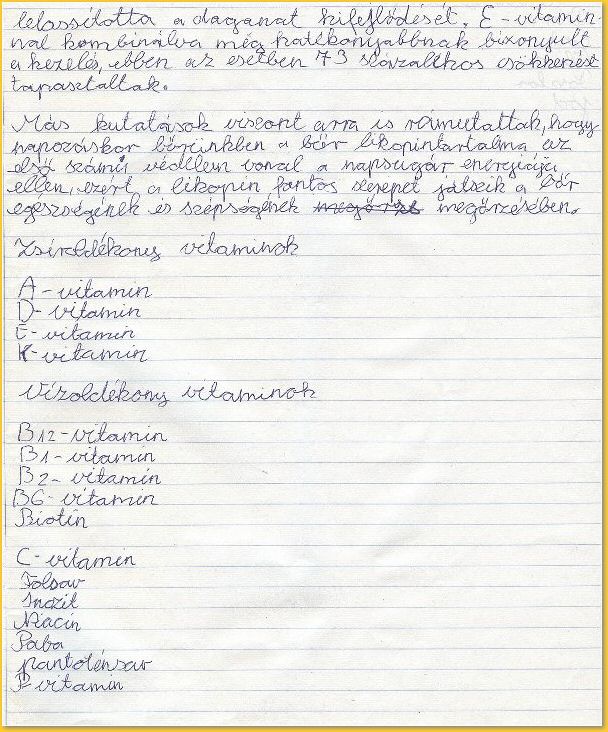 lelassította a daganat kifejlődését. E-vitamin-
nal kombinálva még hatékonyabbnak bizonyult
a kezelés, ebben az esetben 73 százalékos csökkenést
tapasztaltak.
Más kutatások viszont arra is rámutattak, hogy
napozáskor bőrünkben a bőr likopintartalma az
első számú védelem vonal a napsugár energiája
ellen, ezért a likopin fontos szerepet játszik a bőr
egészségének és szépségének megőrzésében.
Zsíroldékony vitaminok
A-vitamin
D-vitamin
E-vitamin
K-vitamin
Vízoldékony vitaminok
B12-vitamin
B1-vitamin
B2-vitamin
B6-vitamin
Biotin
C-vitamin
Folsav
Inozit
Niacin
Paba
pantoténsav
P-vitamin